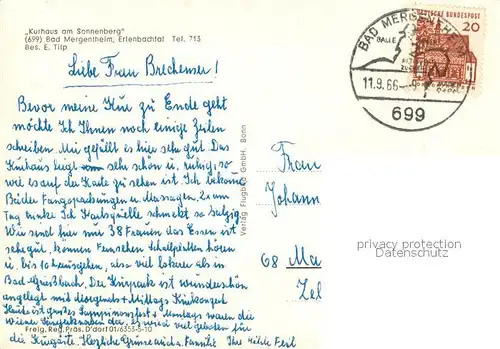 „Kurhaus am Sonnenberg"
(699) Bad Mergentheim, Erlenbachtal Tel. 713
Bes. E. Tilp
BAD MERGENTHEIM
11.9.66
699
DEUTSCHE BUNDESPOST
20
Liebe Frau Brechenser!
Bevor meine Kur zu Ende geht
möchte Ich Ihnen noch einige Zeilen
schreiben. Mir gefällt es hier sehr gut. Das
Kurhaus liegt sehr schön u, ruhig, so
wie es auf der Karte zu sehen ist. Ich bekomme
Bäder Fangopackungen u Massagen, 2x am
Tag trinke Ich Karlsquelle schmekt so salzig.
Wir sind hier nur 38 Frauen das Essen ist
sehr gut, können Fernsehen Schallplatten hören
u, bis 10 h ausgehen, also viel lokerer als in
Bad Grießbach. Der Kurpark ist wunderschön
angelegt mit Morgends + Mittags Kurkonzert
Heute ist großes Lampionsfest + Montags waren die
Wiener Sängerknaben da, es wird viel geboten für
die Kurgäste. Herzliche Grüsse auch a. Familie Ihre Hilde Feil
Verlag Flugbild GmbH. Bonn
Frau
Johann
68 Ma
Zel
privacy protection
Datenschutz
Freig. Reg. Präs. D'dorf 01/6353-5-10